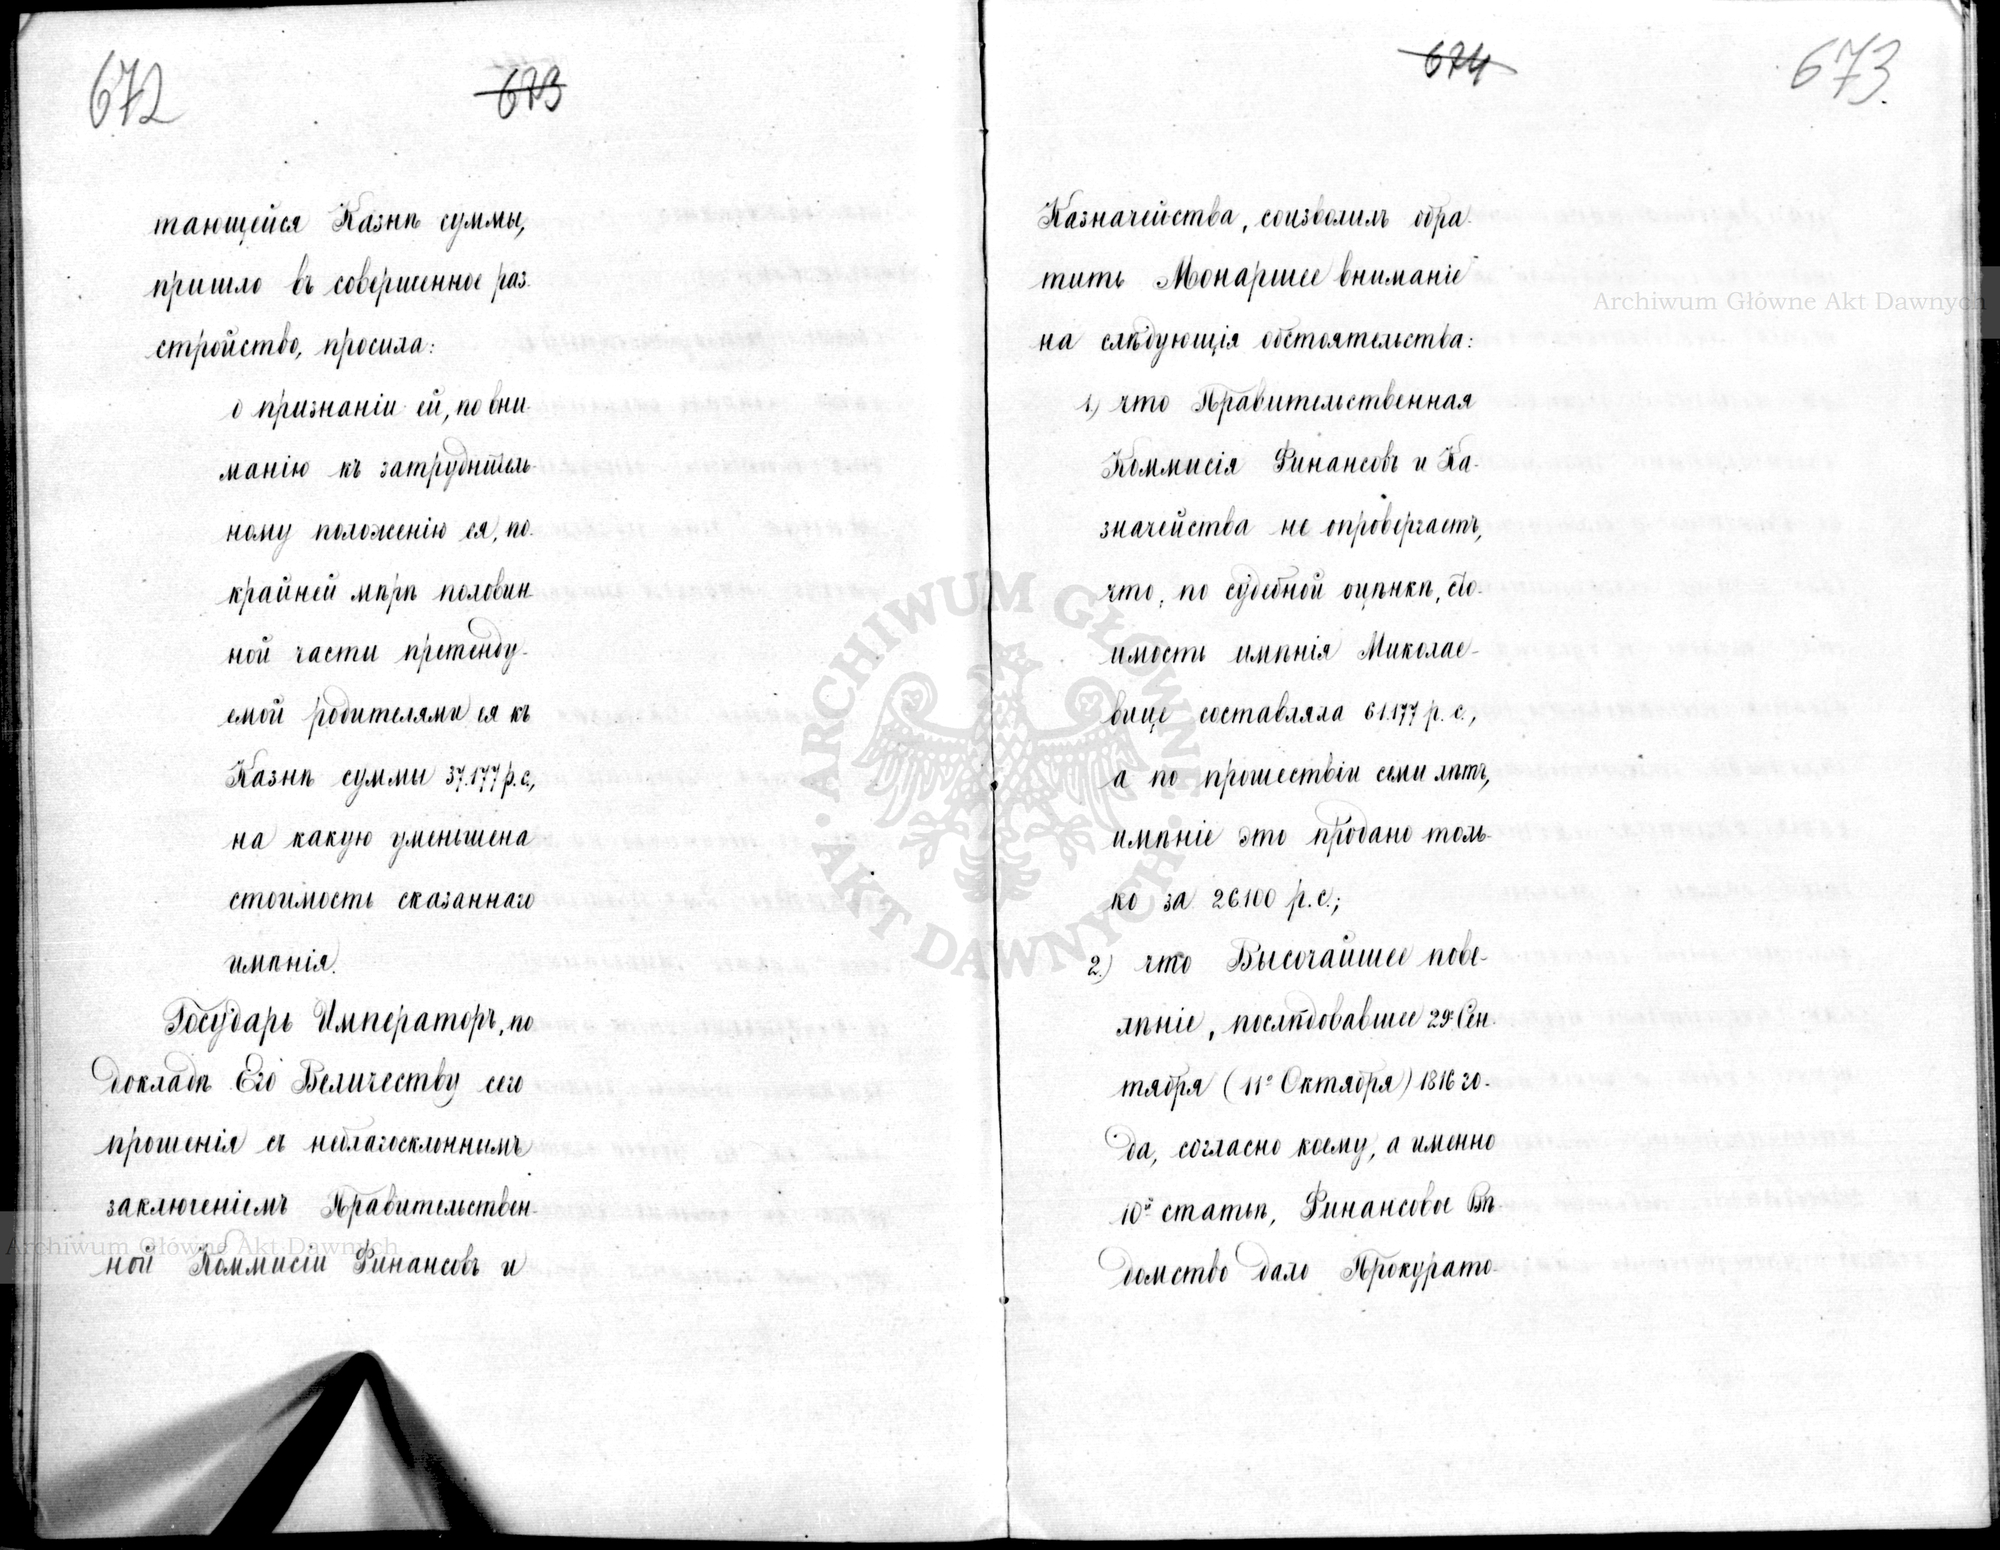 672
673
тающейся Казнѣ суммы,
пришло въ совершенное раз-
стройство, просила:
о признаніи ей, по вни-
манію къ затруднитель-
ному положенію ея, по-
крайней мѣрѣ половин-
ной части претенду-
емой родителями ея къ
Казнѣ суммы 37.177 р. с.,
на какую уменьшена
стоимость сказаннаго
имѣнія.
Государь Императоръ, по
докладѣ Его Величеству сего
прошенія съ неблагосклоннымъ
заключеніемъ Правительствен-
ной Коммисіи Финансовъ и
674
673.
Казначейства, соизволилъ обра-
тить Монаршее вниманіе
на слѣдующія обстоятельства:
1.) что Правительственная
Коммисія Финансовъ и Ка-
значейства не опровергаетъ,
что, по судебной оцѣнкѣ, сто-
имость имѣнія Миколае-
вице составляла 61.177 р. с.,
а по прошествіи семи лѣтъ,
имѣніе это продано толь-
ко за 26.100 р. с.;
2.) что Высочайшее пове-
лѣніе, послѣдовавшее 29 Сен-
тября (11º Октября) 1816 го-
да, согласно коему, а именно
10й статьѣ, Финансовое Вѣ-
домство дало Прокурато-
ARCHIWUM GŁÓWNE AKT DAWNYCH
Archiwum Główne Akt Dawnych
Archiwum Główne Akt Dawnych